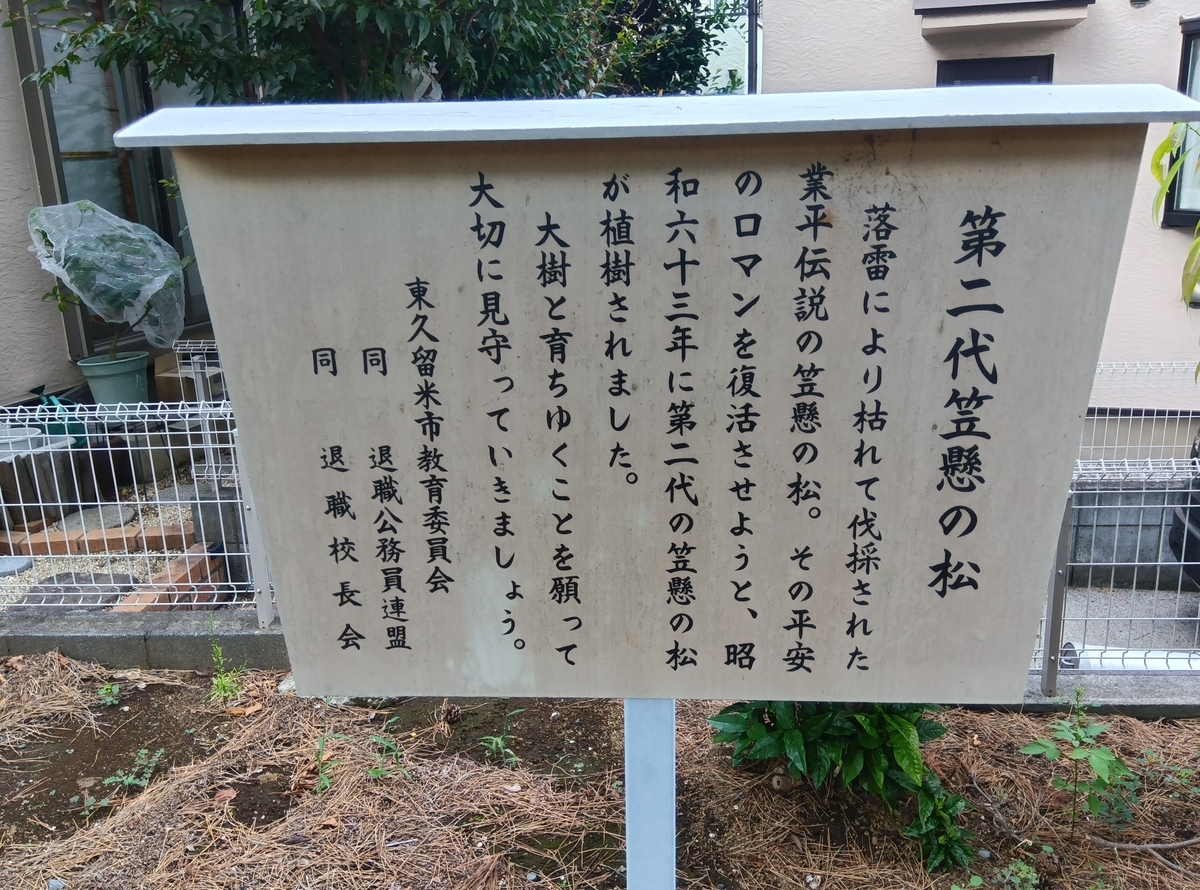 第二代笠懸の松
落雷により枯れて伐採された
業平伝説の笠懸の松。その平安
のロマンを復活させようと、昭
和六十三年に第二代の笠懸の松
が植樹されました。
大樹と育ちゆくことを願って
大切に見守っていきましょう。
東久留米市教育委員会
同 退職公務員連盟
同 退職校長会